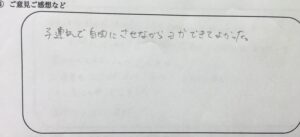 ⑧ ご意見ご感想など
子連れで自由にさせながらヨガできてよかった。